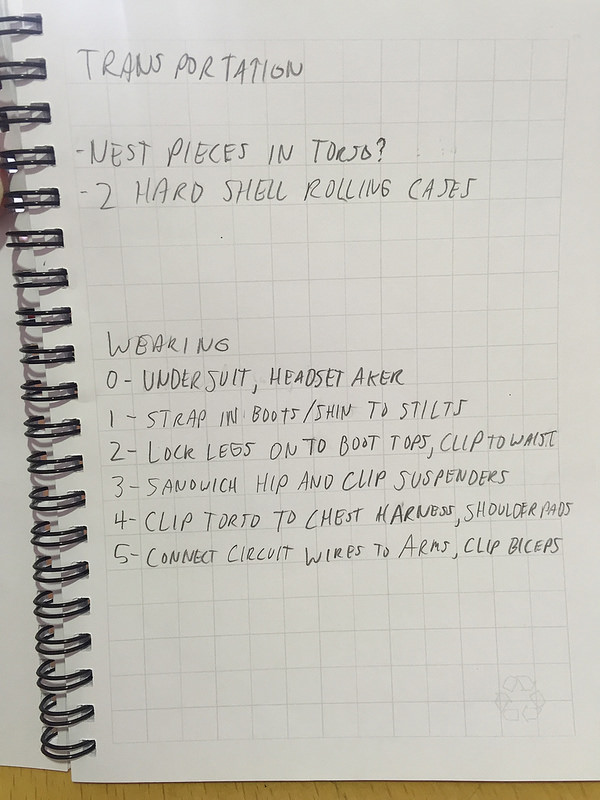 TRANSPORTATION
-NEST PIECES IN TORSO?
-2 HARD SHELL ROLLING CASES
WEARING
0-UNDERSUIT, HEADSET AKER
1-STRAP IN BOOTS/SHIN TO STILTS
2-LOCK LEGS ON TO BOOT TOPS, CLIP TO WAIST
3-SANDWICH HIP AND CLIP SUSPENDERS
4-CLIP TORSO TO CHEST HARNESS, SHOULDER PADS
5-CONNECT CIRCUIT WIRES TO ARMS, CLIP BICEPS